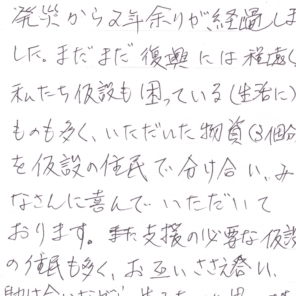 発災から2年余りが経過しま
した。まだまだ復興には程遠く
私たち仮設も困っている(生活に)
ものも多く、いただいた物資(3個分
を仮設の住民で分け合い、み
なさんに喜んでいただいて
おります。また支援の必要な仮設
の住民も多く、お互いささえ合い、
助け合いながら